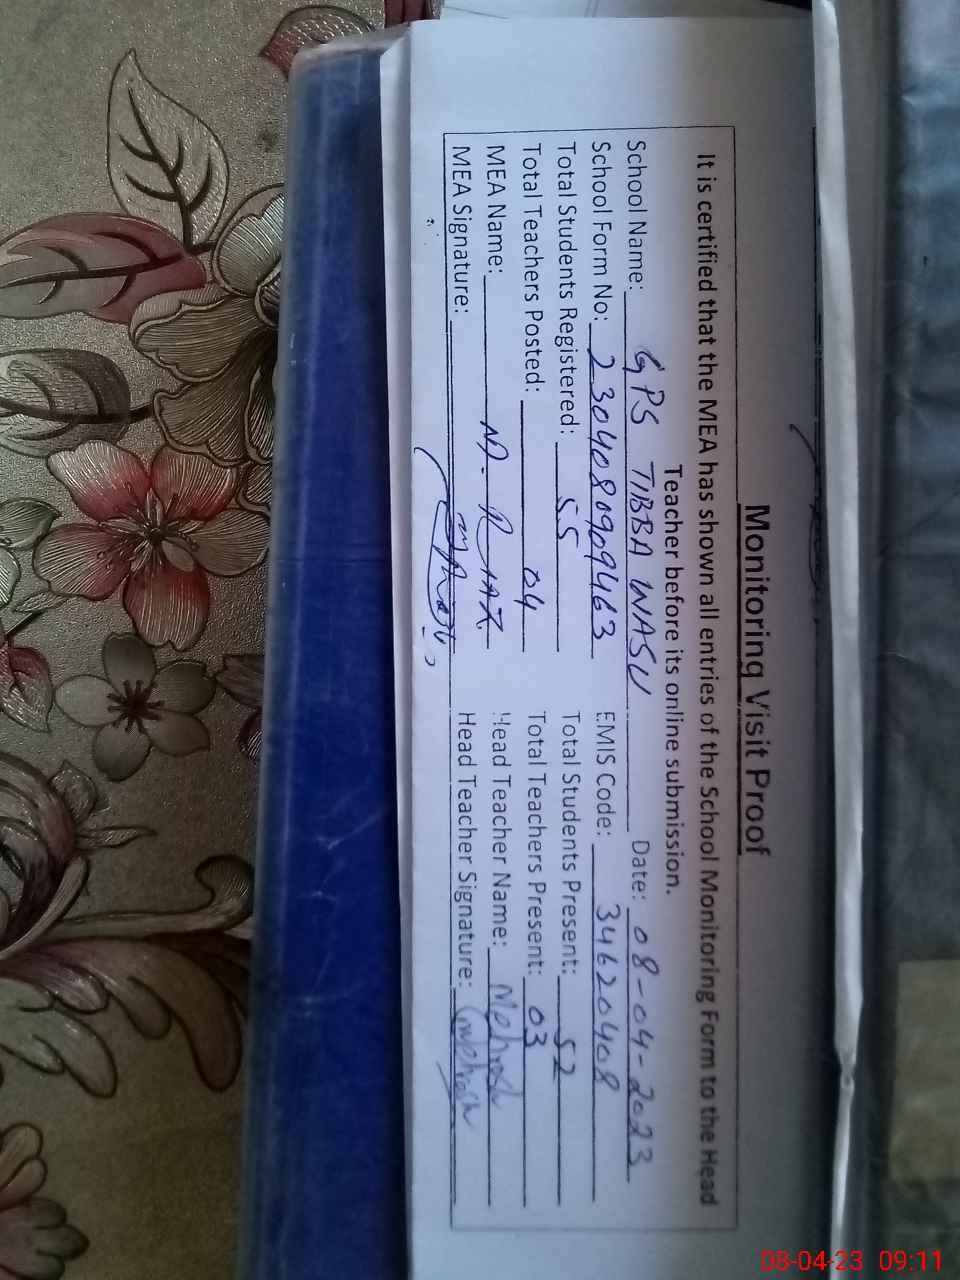 Monitoring Visit Proof
It is certified that the MEA has shown all entries of the School Monitoring Form to the Head
Teacher before its online submission.
School Name: GPS TIBBA WASU Date: 08-04-2023
School Form No: 2304080909463 EMIS Code: 34620408
Total Students Registered: 55 Total Students Present: 52
Total Teachers Posted: 04 Total Teachers Present: 03
MEA Name: M. RIAZ Head Teacher Name: Mehwish
MEA Signature: Head Teacher Signature: Mehwish
08-04-23 09:11